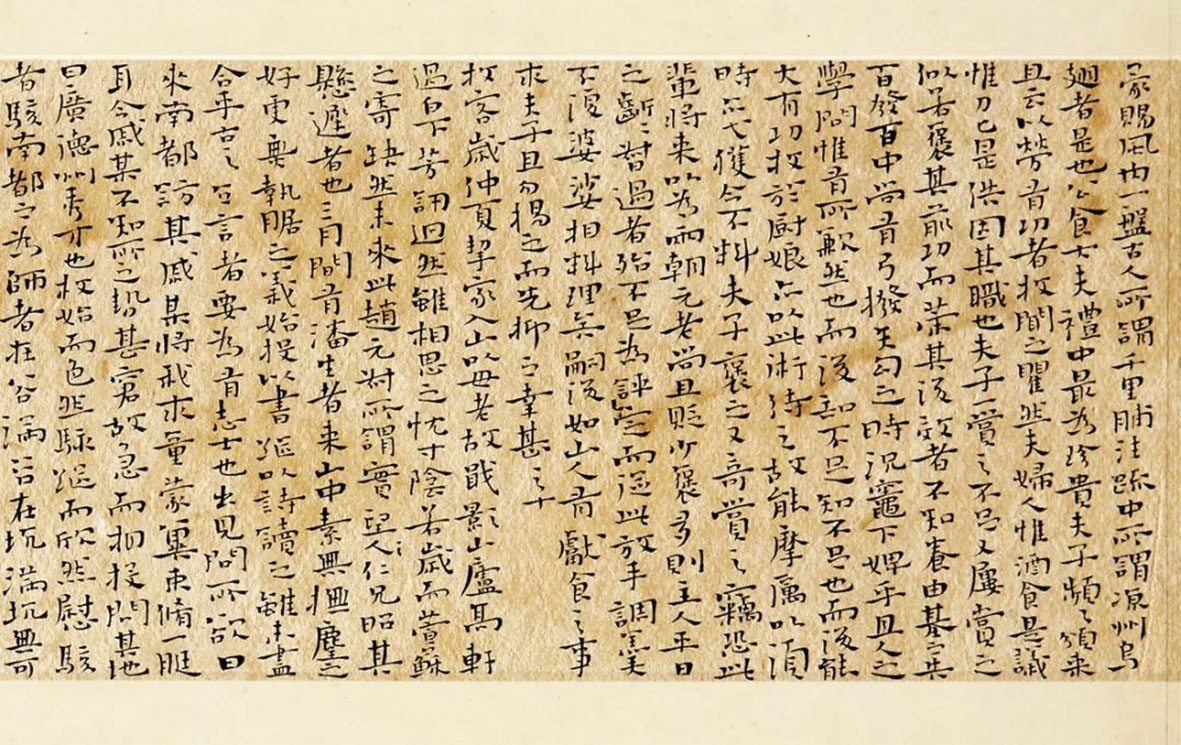 蒙賜風肉一盤古人所謂千里脯注疏中所謂涼州烏
翅者是也公食大夫禮中最為珍貴夫子頻々頒来
且云以勞有功者牧聞之瞿然夫婦人惟酒食是議
惟刀匕是供因其職也夫子一賞之不已又屢賞之
似若褒其前功而榮其後效者不知養由基之其
百發百中尚有弓撥矢勾之時況竈下婢乎且人之
學問惟有所歉然也而後知不足知不足也而後能
大有功牧於廚娘亦以此術待之故能摩厲以須
時亦弋獲今不料夫子褒之又奇賞之竊恐此
輩將来以為兩朝元老尚且貶少褒多則主人平日
之斷斷督過者殆不足為評定而從此放手調羹
不復婆娑相料理矣嗣後如山人有獻食之事
求夫子且勿揚之而先抑之幸甚々々
牧客歲仲夏挈家入山以母老故戢影山廬高軒
過白下芳訊迥然雖相思之忱寸陰若歲而萱蘇
之寄缺然未来此趙元對所謂實望仁兄昭其
懸遲者也三月間有潘生者来山中素無摳塵之
好更無執腒之義始投以書繼以詩讀之雖未盡
合乎古之立言者要為有志士也出見問所欲曰
来南都訪其戚某將我求童蒙冀束脩一脡
耳今戚某不知所之勢甚窘故急而相投問其地
曰廣德州秀才也牧始而色然駭繼而欣然慰駭
者駭南都之為師者在谷滿谷在坑滿坑無可